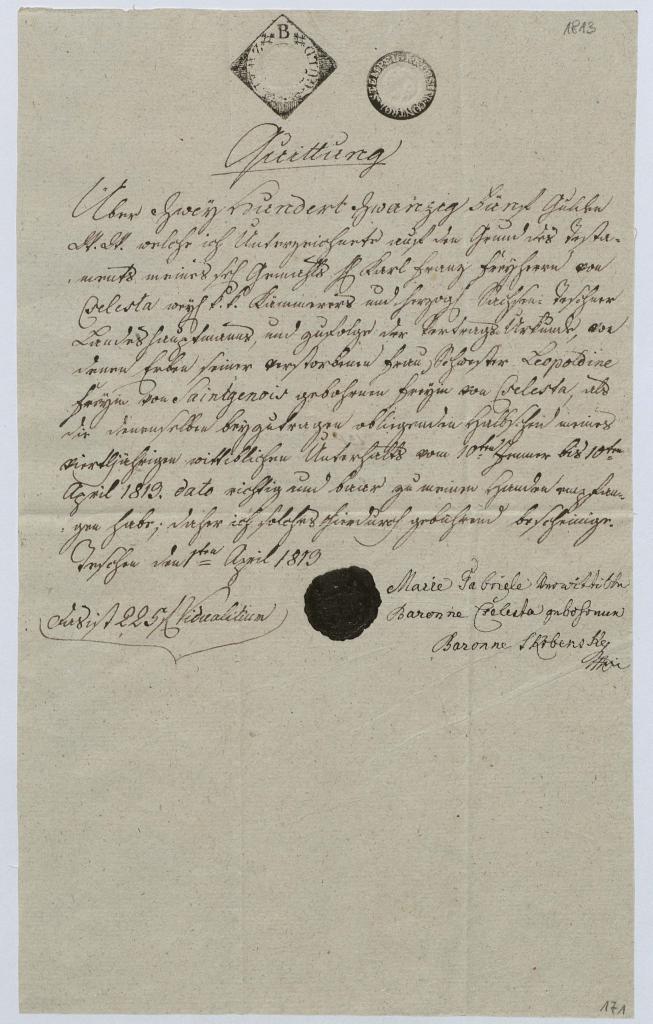 1813
B
Quittung
Über Zwey Hundert Zwanzig Fünf Gulden
welche ich Unterzeichnete auf den Grund des Testa-
ments meines Gemahls Karl Franz Freyherrn von
Cselesta weyl k. k. Kämmerers und herzogl Sachsen Teschner
Landeshauptmanns, und zufolge der Vertrags Urkunde, von
denen Erben seiner verstorbenen Frau Schwester Leopoldine
Freyin von Saintgenois gebohrnen Freyin von Cselesta, als
die denenselben beyzutragen obliegenden Halbscheid meines
viertljährigen wittiblichen Unterhalts vom 10ten Jenner bis 10ten
April 1813. dato richtig und baar zu meinen Handen empfan-
gen habe; daher ich solches hierdurch gebührend bescheinige.
Teschen den 1ten April 1813
Das ist 225 f Vidualitium
Marie Gabriele verwittibte
Baronne Cselesta gebohrne
Baronne Skrbensky
171